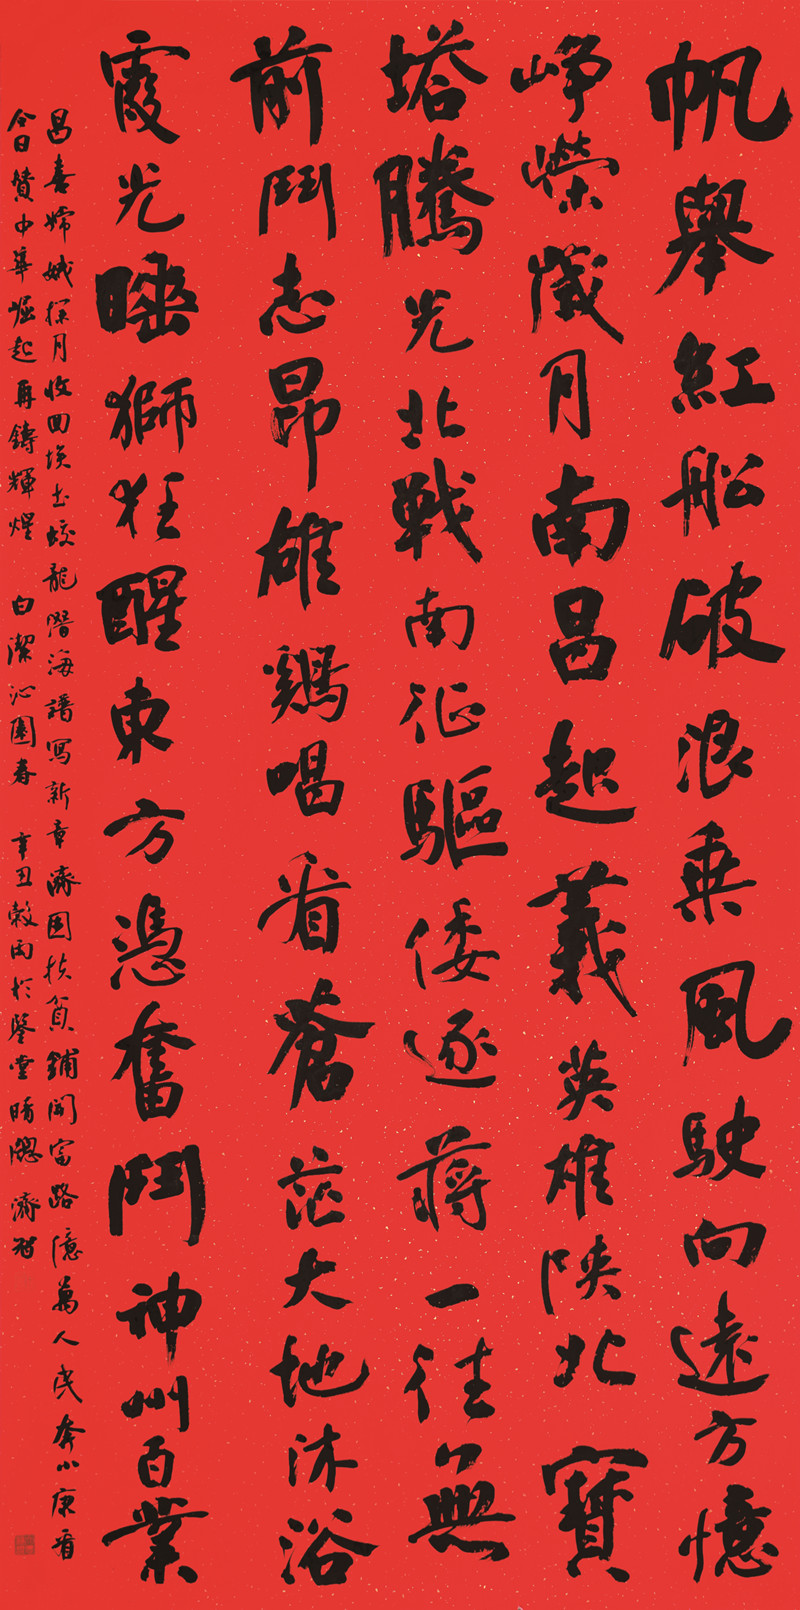 帆舉紅船破浪乘風駛向遠方憶
崢嶸歲月南昌起義英雄陝北寶
塔騰光北戰南征驅倭逐蔣一往無
前鬥志昂雄鷄唱看蒼茫大地沐浴
霞光睡獅狂醒東方憑奮鬥神州百業
昌喜嫦娥探月收回塊土蛟龍潛海譜寫新章濟困扶貧鋪開富路億萬人民奔小康看
今日贊中華崛起再鑄輝煌 白潔沁園春 辛丑穀雨於鑒堂晴牕 濟